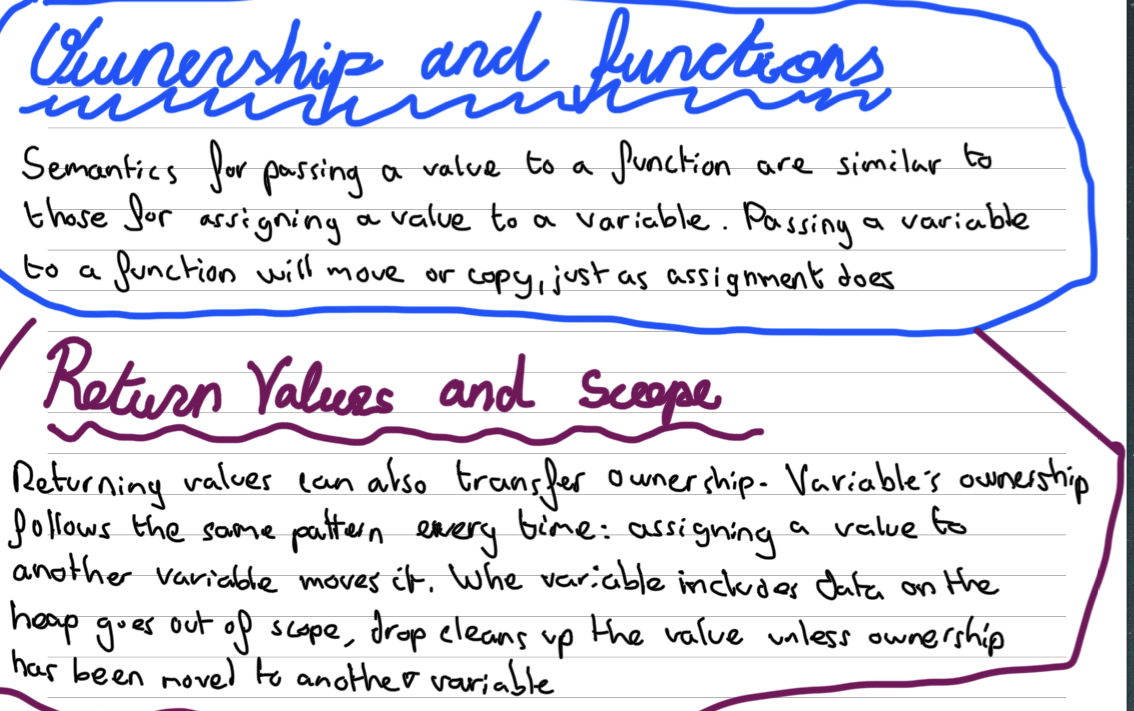 Ownership and functions
Semantics for passing a value to a function are similar to
those for assigning a value to a variable. Passing a variable
to a function will move or copy, just as assignment does
Return Values and Scope
Returning values can also transfer ownership. Variable's ownership
follows the same pattern every time: assigning a value to
another variable moves it. Whe variable includes data on the
heap goes out of scope, drop cleans up the value unless ownership
has been moved to another variable